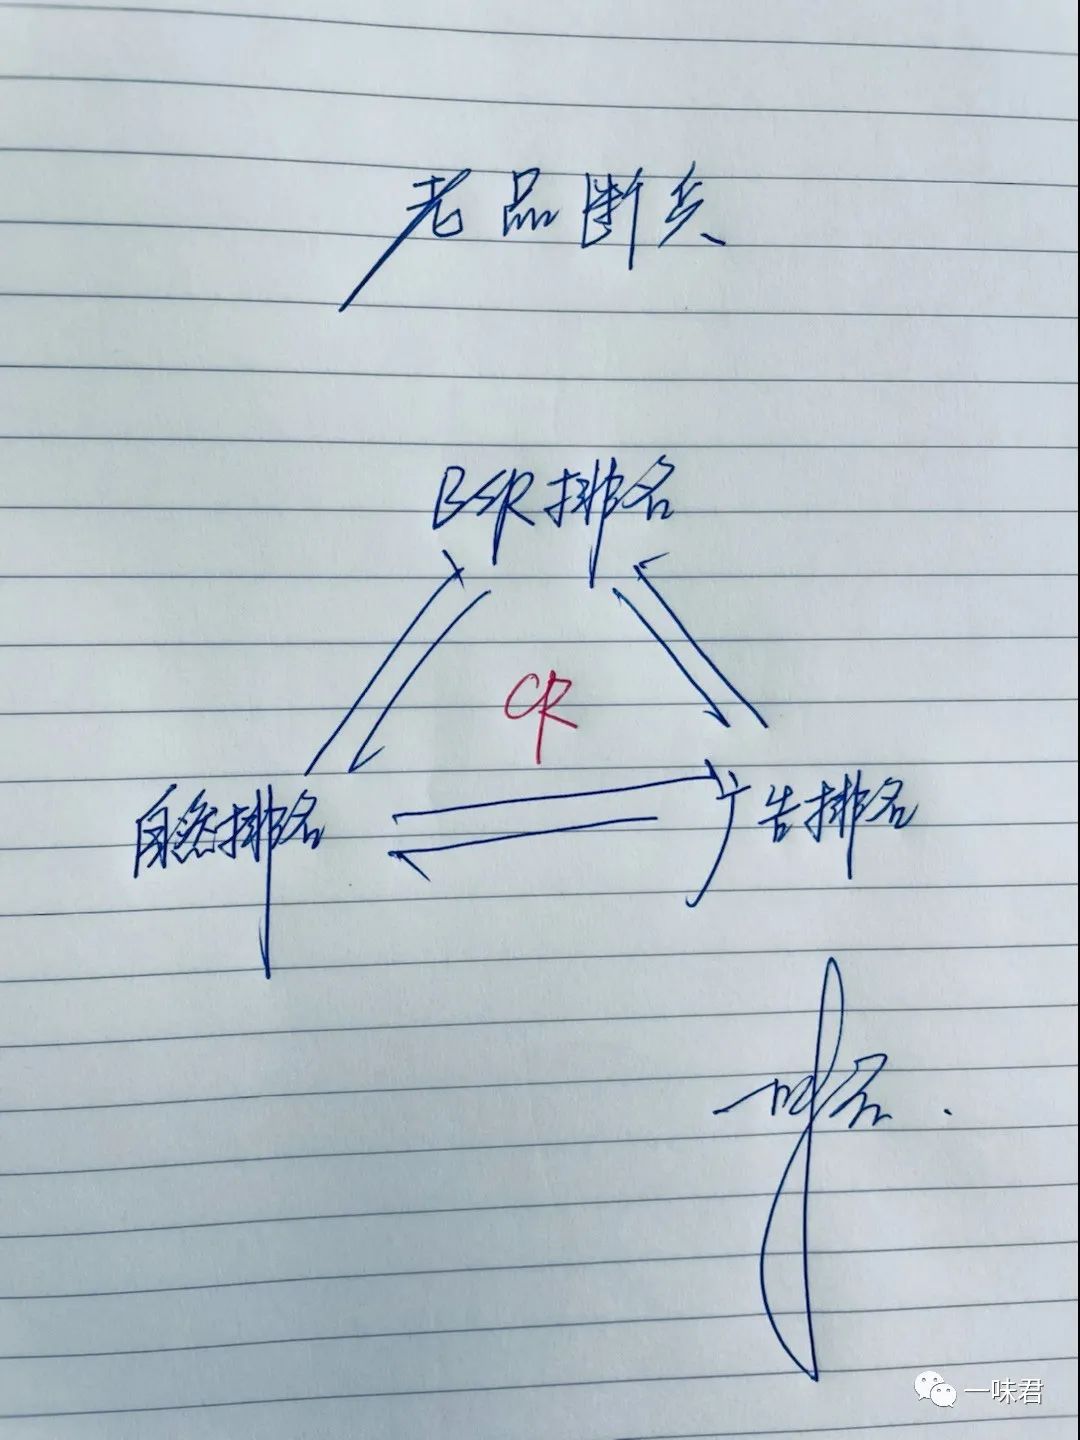 老品断兵
BSR排名
CR
自然排名 广告排名
一味君.
一味君